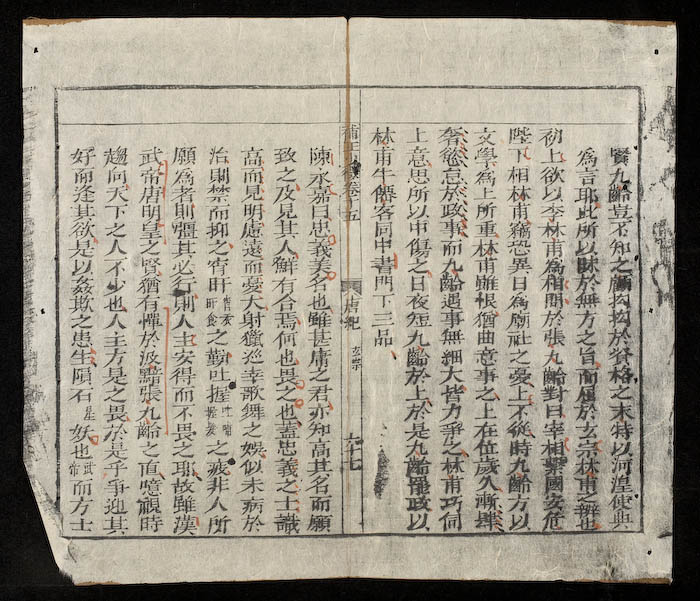 賢九齡豈不知之顧拘拘於資格之末特以河湟使典
爲言耶此所以昧於無方之旨而屈於玄宗林甫之辨也
初上欲以李林甫爲相問於張九齡對曰宰相繫國安危
陛下相林甫竊恐異日爲廟社之憂上不從時九齡方以
文學爲上所重林甫雖恨猶曲意事之上在位歲久漸肆
奢慾怠於政事而九齡遇事無細大皆力爭之林甫巧伺
上意思所以中傷之日夜短九齡於上於是九齡罷政以
林甫牛僊客同中書門下三品
補正
卷十五
唐紀
玄宗
六十七
陳永嘉曰忠義美名也雖甚庸之君亦知高其名而願
致之及見其人鮮有合焉何也畏之也蓋忠義之士識
高而見明慮遠而憂大射獵巡幸歌舞之娛似未病於
治則禁而抑之宵旰宵衣旰食之勤吐握吐哺握髮之疲非人所
願爲者則彊其必行則人主安得而不畏之耶故雖漢
武帝唐明皇之賢猶有憚於汲黯張九齡之直噫觀時
趨向天下之人不少也人主方是之畏於是乎爭迎其
好而逢其欲是以姦欺之患生隕石星妖也武帝而方士